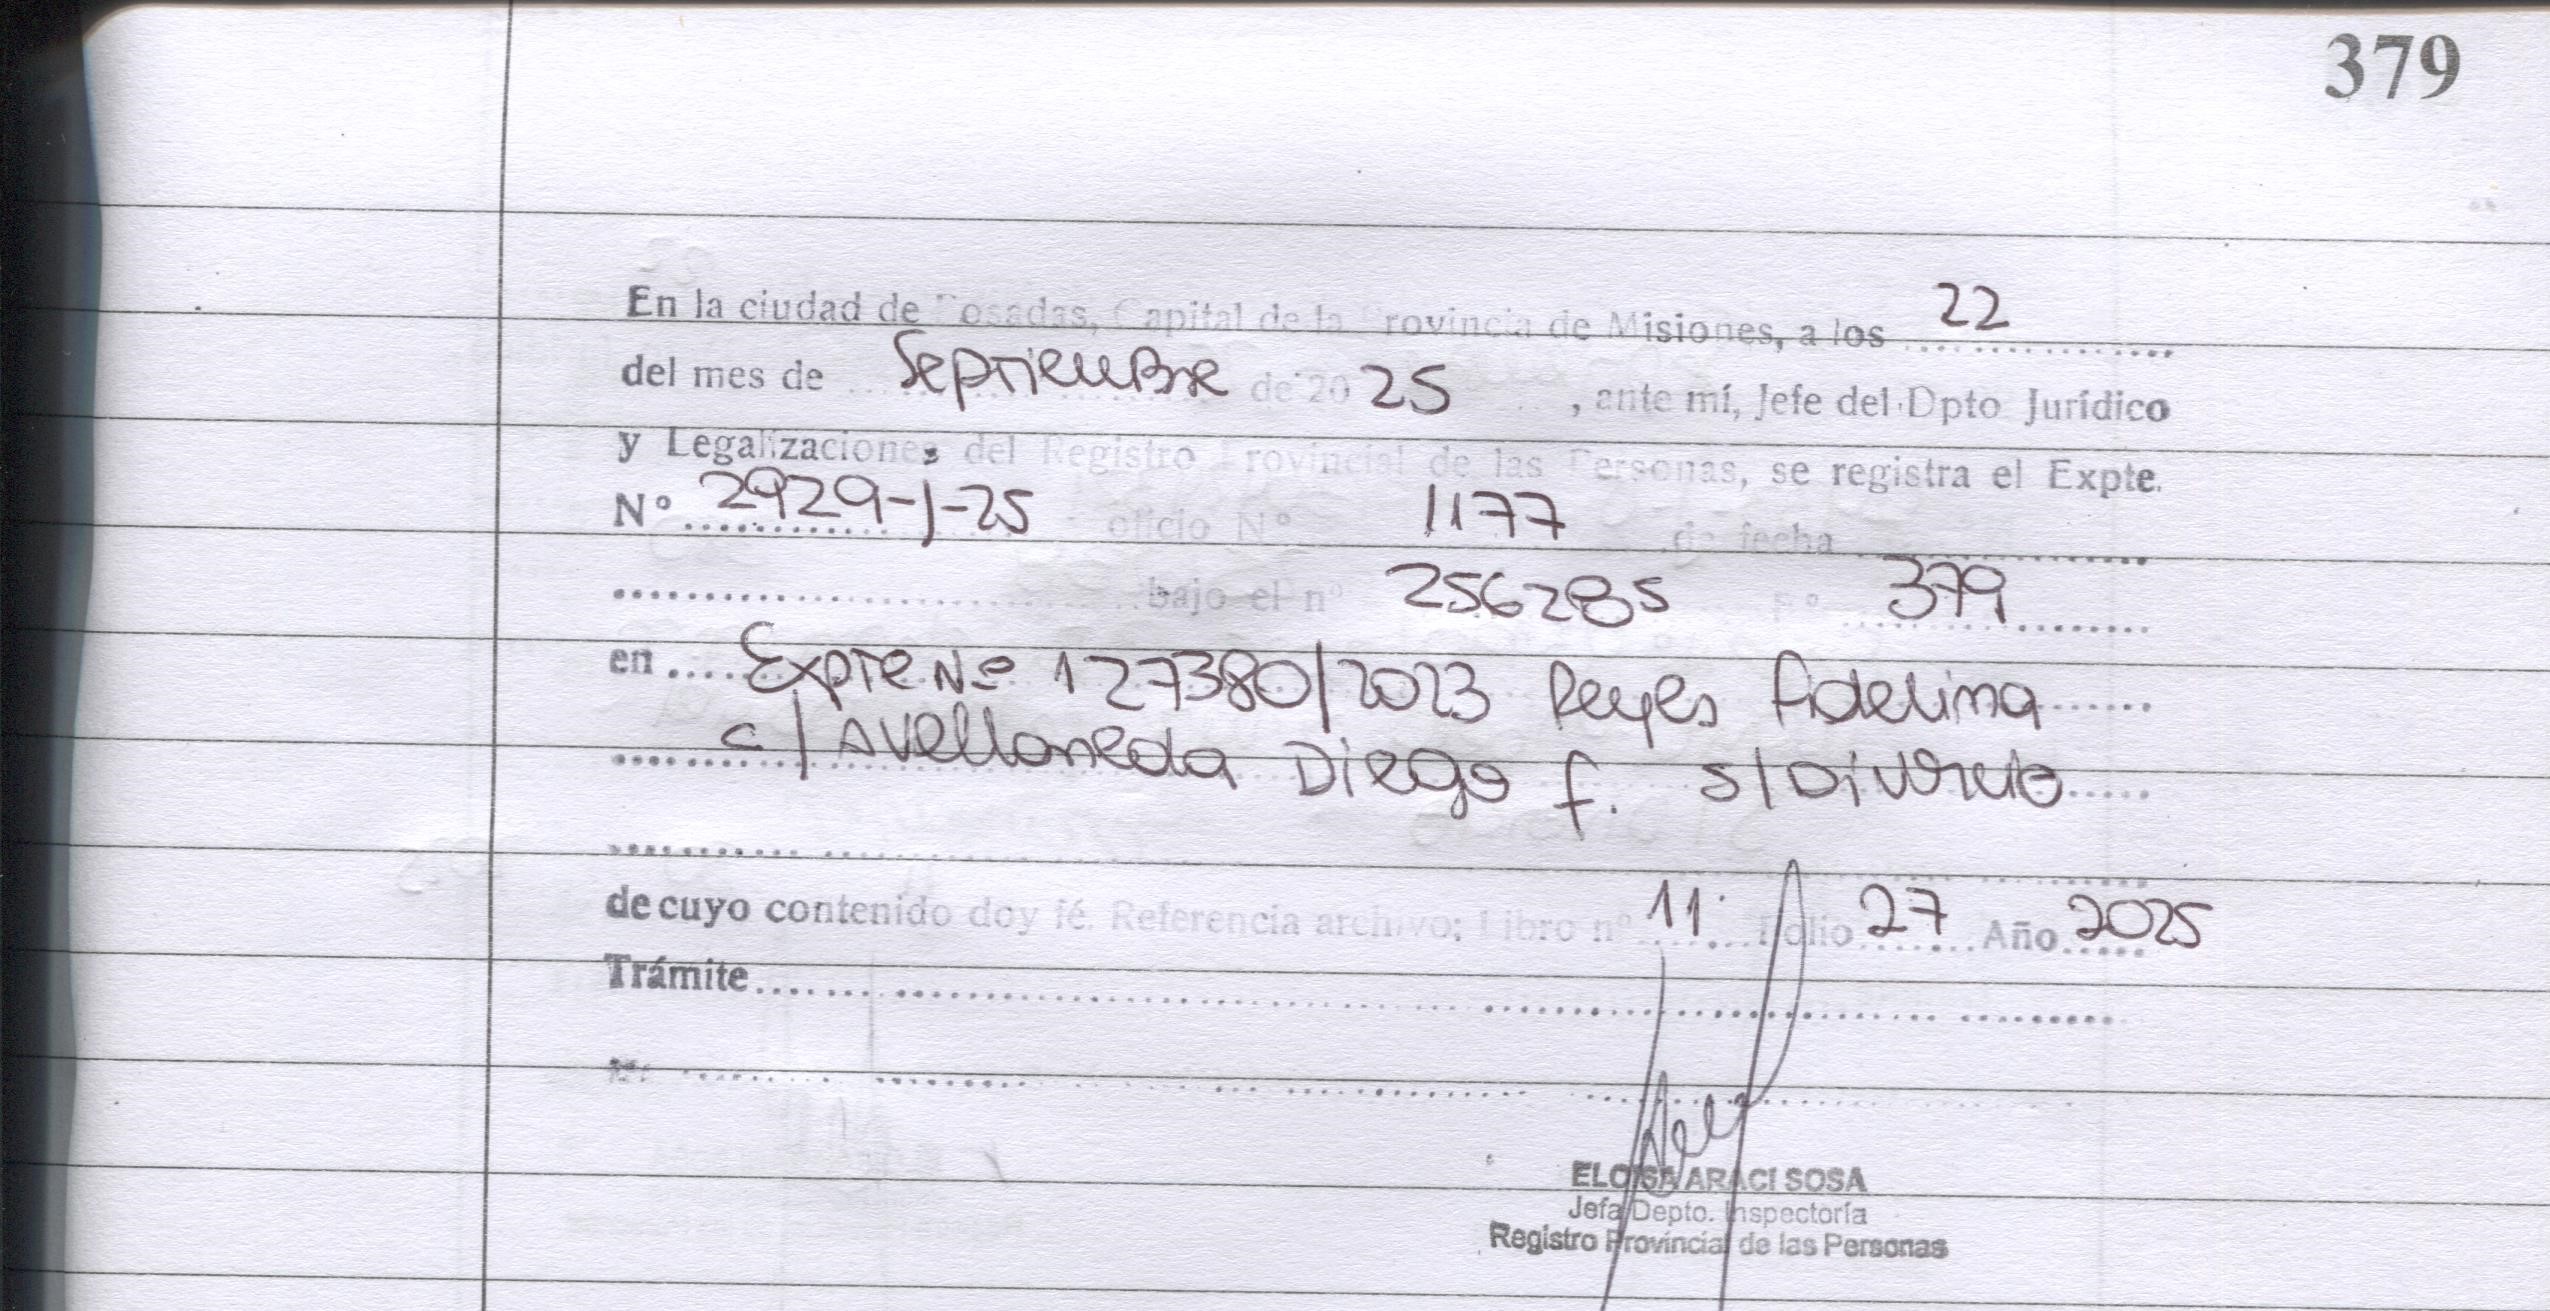 379
En la ciudad de Posadas, Capital de la Provincia de Misiones, a los 22
del mes de Septiembre de 20 25, ante mí, Jefe del Dpto Jurídico
y Legalizaciones del Registro Provincial de las Personas, se registra el Expte.
Nº 2929-J-25 oficio Nº 1177 de fecha
bajo el nº 256285 Fº 379
en Expte Nº 127380/2023 Reyes Fidelina
c/ Avellaneda Diego F. s/Divorcio
de cuyo contenido doy fé. Referencia archivo; Libro nº 11 Folio 27 Año 2025
Trámite
ELOISA ARACI SOSA
Jefa Depto. Inspectoría
Registro Provincial de las Personas